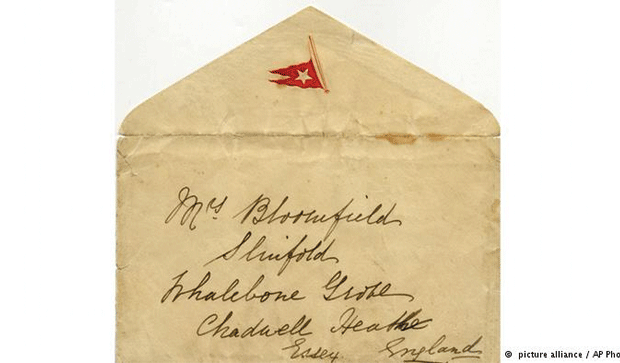 Mrs Bloomfield
Slinfold
Whalebone Grove
Chadwell Heath
Essex England
© picture alliance / AP Pho